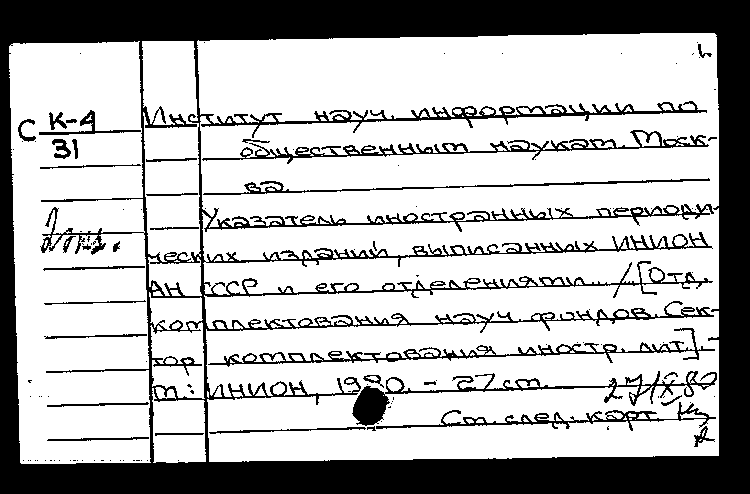 С К-4
31
Институт науч. информации по
общественным наукам. Моск-
ва
Указатель иностранных периоди-
ческих изданий, выписанных ИНИОН
АН СССР и его отделениями... / [Отд.
комплектования науч. фондов. Сек-
тор комплектования иностр. лит.]. -
М.: ИНИОН, 1980. - 27 см.
27/X 80
См. след. карт.